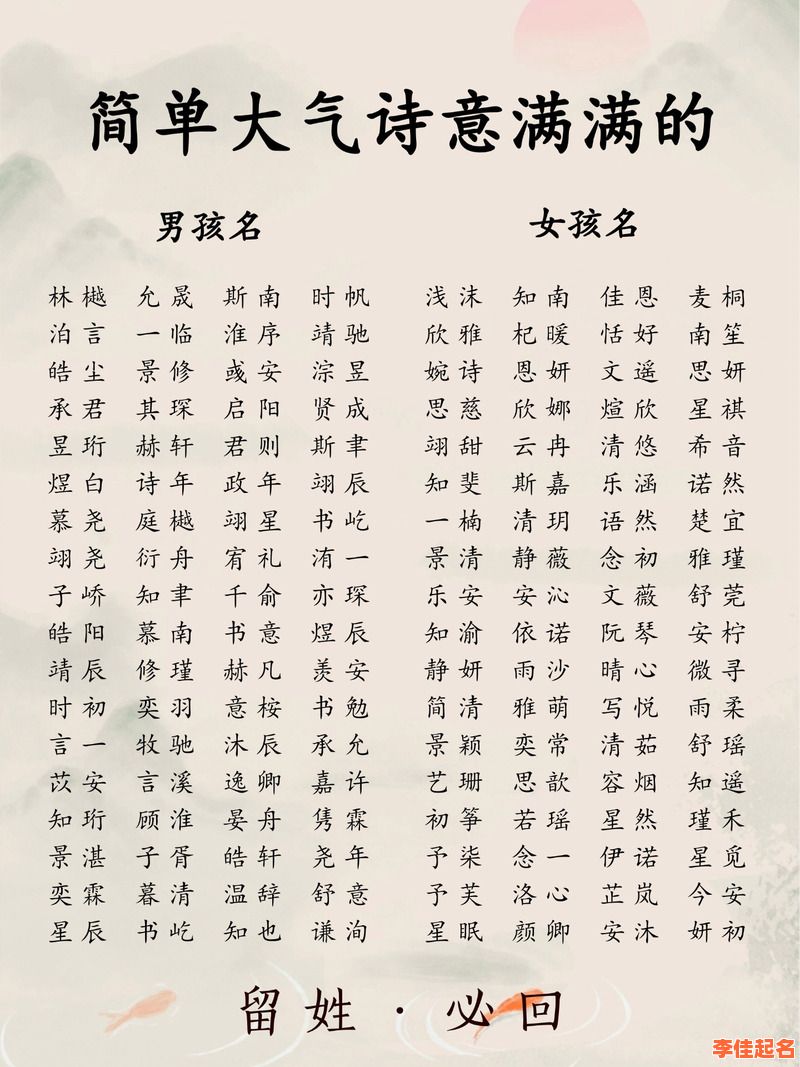 简单大气诗意满满的
男孩名 女孩名
林樾 允晟 斯南 时帆 浅沫 知南 佳恩 麦桐
泊言 一临 淮序 靖驰 欣雅 杞暖 恬好 南笙
皓尘 景修 彧安 淙昱 婉诗 恩妍 文遥 思妍
承君 其琛 启阳 贤成 思慈 欣娜 煊欣 星祺
昱珩 赫轩 君则 斯聿 翊甜 云冉 清悠 希音
煜白 诗年 政年 翊辰 知斐 斯嘉 乐涵 诺然
慕尧 庭樾 翊星 书屹 一楠 清玥 语然 楚宜
翊尧 衍舟 宥礼 洧一 景清 静薇 念初 雅瑾
子峤 知聿 千俞 亦琛 乐安 安沁 文薇 舒莞
皓阳 慕南 书意 煜辰 知渝 依诺 阮琴 安柠
靖辰 修瑾 赫凡 羡安 静妍 雨沙 晴心 微寻
时初 奕羽 意桉 书勉 简清 雅萌 写悦 雨柔
言一 牧驰 沐辰 承允 景颖 奕常 清茹 舒瑶
苡安 言溪 逸卿 嘉许 艺珊 思歆 容烟 知遥
知珩 顾淮 晏舟 隽霖 初筝 若瑶 星然 瑾禾
景湛 子胥 皓轩 尧年 予柒 念一 伊诺 星觅
奕霖 暮清 温辞 舒意 予芙 洛心 芷岚 今安
星辰 书屹 知也 谦洵 星眠 颜卿 安沐 妍初
留姓·必回
李佳起名